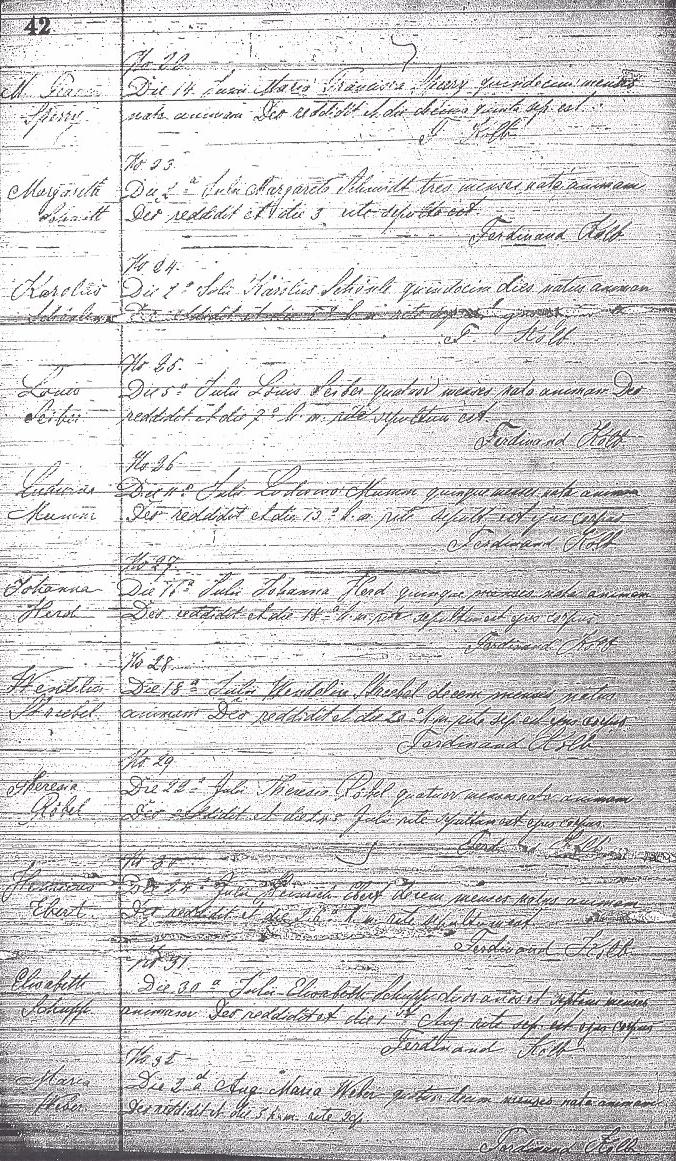 42
No 22
M. Sperry
Die 14 Junii Maria Francisca Sperry quindecim menses
nata animam Deo reddidit et die decima quinta sep. est.
F Kolb
No 23
Margareth Schmidt
Die 2a Julii Margareta Schmidt tres menses nata animam
Deo reddidit et die 3 rite sepulta est.
Ferdinand Kolb
No 24
Karolus
Die 2a Julii Karolus Schönle quindecim dies natus animam
Deo reddidit et die h. m. rite
F Kolb
No 25
Louis Seiber
Die 5a Julii Louis Seiber quatuor menses nato animam Deo
reddidit et die 7a h. m. rite sepultum est
Ferdinand Kolb
No 26
Mumm
Die 11a Julii Ludovico Mumm quinque menses nata animam
Deo reddidit et die 13a h. m. rite sepult. est ejus corpus
Ferdinand Kolb
No 27
Johanna Herd
Die 16a Julii Johanna Herd quinque menses nata animam
Deo reddidit et die 18a h. m. rite sepultum est ejus corpus
Ferdinand Kolb
No 28
Wendelin Striebel
Die 18a Julii Wendelin Striebel decem menses natus
animam Deo reddidit et die 20a h. m. rite sep. est ejus corpus
Ferdinand Kolb
No 29
Theresia Röbel
Die 22a Julii Theresia Röbel quatuor menses nata animam
Deo reddidit et die 24a Julii rite sepultum est ejus corpus
Ferdinand Kolb
No 30
Henricus Ebert
Die 24a Julii Heinrich Ebert decem menses natus animam
Deo reddidit et die 26a h. m. rite sepultum est.
Ferdinand Kolb
No 31
Elisabeth Schupp
Die 30a Julii Elisabeth Schupp duos annos et septem menses
animam Deo reddidit et die 1st Aug. rite sep. est ejus corpus
Ferdinand Kolb
No 32
Maria Weber
Die 2a Aug. Maria Weber menses nata animam
Deo reddidit et die 3 h. m. rite sep.
Ferdinand Kolb